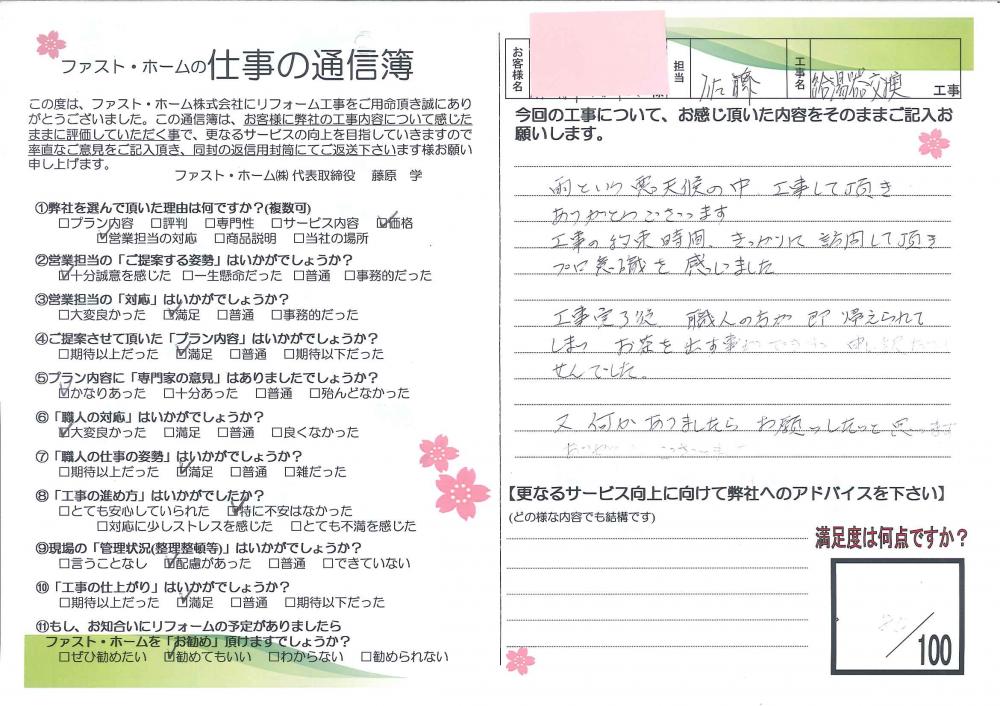 ファスト・ホームの仕事の通信簿
この度は、ファスト・ホーム株式会社にリフォーム工事をご用命頂き誠にあり
がとうございました。この通信簿は、お客様に弊社の工事内容について感じた
ままに評価していただく事で、更なるサービスの向上を目指していきますので
率直なご意見をご記入頂き、同封の返信用封筒にてご返送下さいます様お願い
申し上げます。
ファスト・ホーム㈱ 代表取締役 藤原 学
①弊社を選んで頂いた理由は何ですか?(複数可)
□プラン内容 □評判 □専門性 □サービス内容 ☑価格
☑営業担当の対応 □商品説明 □当社の場所
②営業担当の「ご提案する姿勢」はいかがでしょうか?
☑十分誠意を感じた □一生懸命だった □普通 □事務的だった
③営業担当の「対応」はいかがでしょうか?
□大変良かった ☑満足 □普通 □事務的だった
④ご提案させて頂いた「プラン内容」はいかがでしょうか?
□期待以上だった ☑満足 □普通 □期待以下だった
⑤プラン内容に「専門家の意見」はありましたでしょうか?
☑かなりあった □十分あった □普通 □殆んどなかった
⑥「職人の対応」はいかがでしょうか?
☑大変良かった □満足 □普通 □良くなかった
⑦「職人の仕事の姿勢」はいかがでしょうか?
□期待以上だった ☑満足 □普通 □雑だった
⑧「工事の進め方」はいかがでしたか?
□とても安心していられた ☑特に不安はなかった
□対応に少しストレスを感じた □とても不満を感じた
⑨現場の「管理状況(整理整頓等)」はいかがでしょうか?
□言うことなし ☑配慮があった □普通 □できていない
⑩「工事の仕上がり」はいかがでしょうか?
□期待以上だった ☑満足 □普通 □期待以下だった
⑪もし、お知合いにリフォームの予定がありましたら
ファスト・ホームを「お勧め」頂けますでしょうか?
□ぜひ勧めたい ☑勧めてもいい □わからない □勧められない
お客様名 担当 佐藤 工事名 給湯器交換 工事
今回の工事について、お感じ頂いた内容をそのままご記入お
願いします。
雨という悪天候の中 工事して頂き
ありがとうございます
工事の約束時間、きっかりに訪問して頂き
プロ意識を感じました
工事完了後 職人の方が 即 帰えられて
しまい お茶を出す事ができず 申し訳
せんでした。
又 何かありましたら お願いしたいと思います
【更なるサービス向上に向けて弊社へのアドバイスを下さい】
(どの様な内容でも結構です)
満足度は何点ですか?
/100